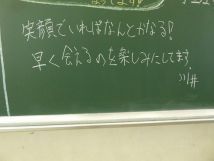 笑顔でいればなんとかなる!
早く会えるのを楽しみにしてます。
川井